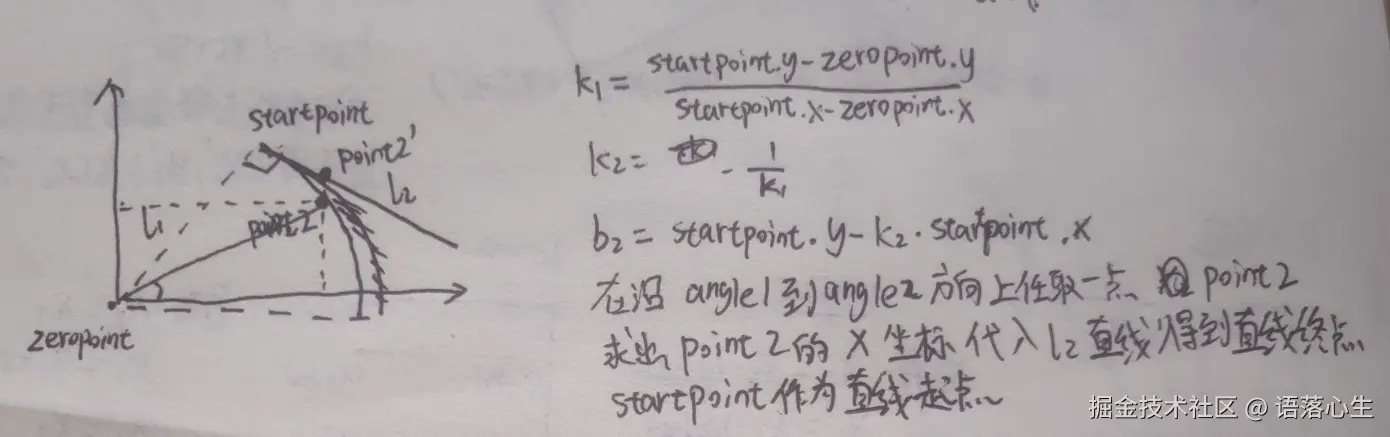 startpoint
point2'
l₂
l₁
point2
zeropoint
k₁ = startpoint.y-zeropoint.y / startpoint.x-zeropoint.x
k₂ = - 1/k₁
b₂ = startpoint.y-k₂·startpoint.x
在沿 angle1到angle2 方向上任取一点 point2
求出 point2的 X 坐标 代入 l₂ 直线得到直线终点
startpoint作为直线起点
掘金技术社区 @ 语落心生